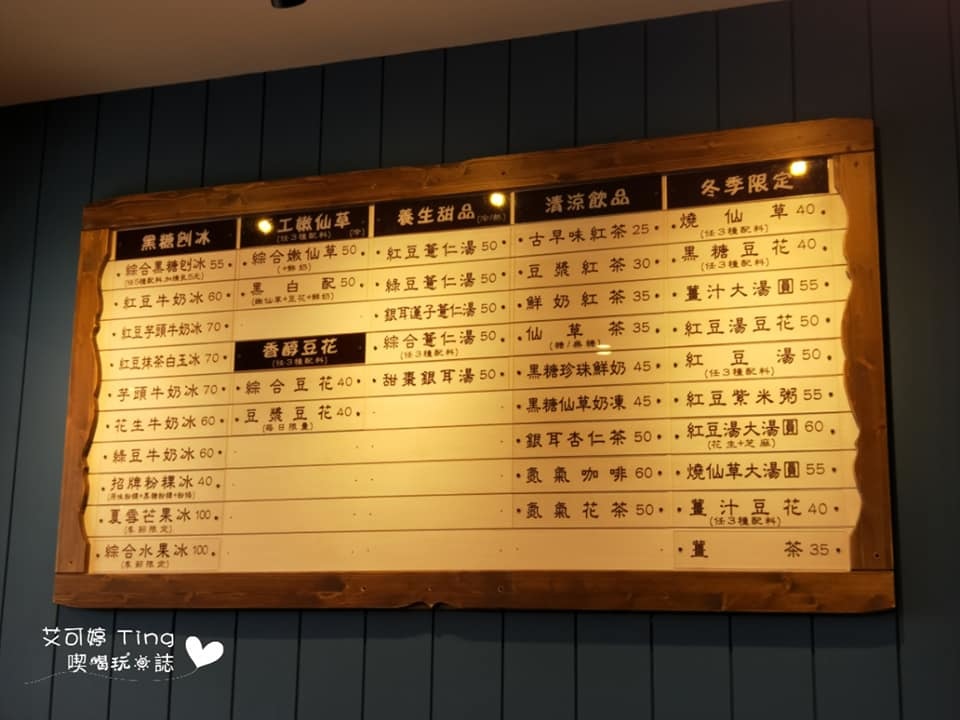 黑糖刨冰
綜合黑糖刨冰 55
紅豆牛奶冰 60
紅豆芋頭牛奶冰 70
紅豆抹茶白玉冰 70
芋頭牛奶冰 70
花生牛奶冰 60
綠豆牛奶冰 60
招牌粉粿冰 40
夏雪芒果冰 100
(季節限定)
綜合水果冰 100
(季節限定)
工嫩仙草 (冷)
(任3種配料)
綜合嫩仙草 50
(+鮮奶)
黑白配 50
(嫩仙草+豆花+鮮奶)
香醇豆花
(任3種配料)
綜合豆花 40
豆漿豆花 40
(每日限量)
養生甜品 (冷/熱)
紅豆薏仁湯 50
綠豆薏仁湯 50
銀耳蓮子薏仁湯 50
綜合薏仁湯 50
(任3種配料)
甜棗銀耳湯 50
清涼飲品
古早味紅茶 25
豆漿紅茶 30
鮮奶紅茶 35
仙草茶 35
(糖/無糖)
黑糖珍珠鮮奶 45
黑糖仙草奶凍 45
銀耳杏仁茶 50
氮氣咖啡 60
氮氣花茶 50
冬季限定
燒仙草 40
(任3種配料)
黑糖豆花 40
(任3種配料)
薑汁大湯圓 55
紅豆湯豆花 50
紅豆湯 50
(任3種配料)
紅豆紫米粥 55
紅豆湯大湯圓 60
(花生+芝麻)
燒仙草大湯圓 55
薑汁豆花 40
(任3種配料)
薑茶 35
艾可婷 Ting
喫喝玩樂誌